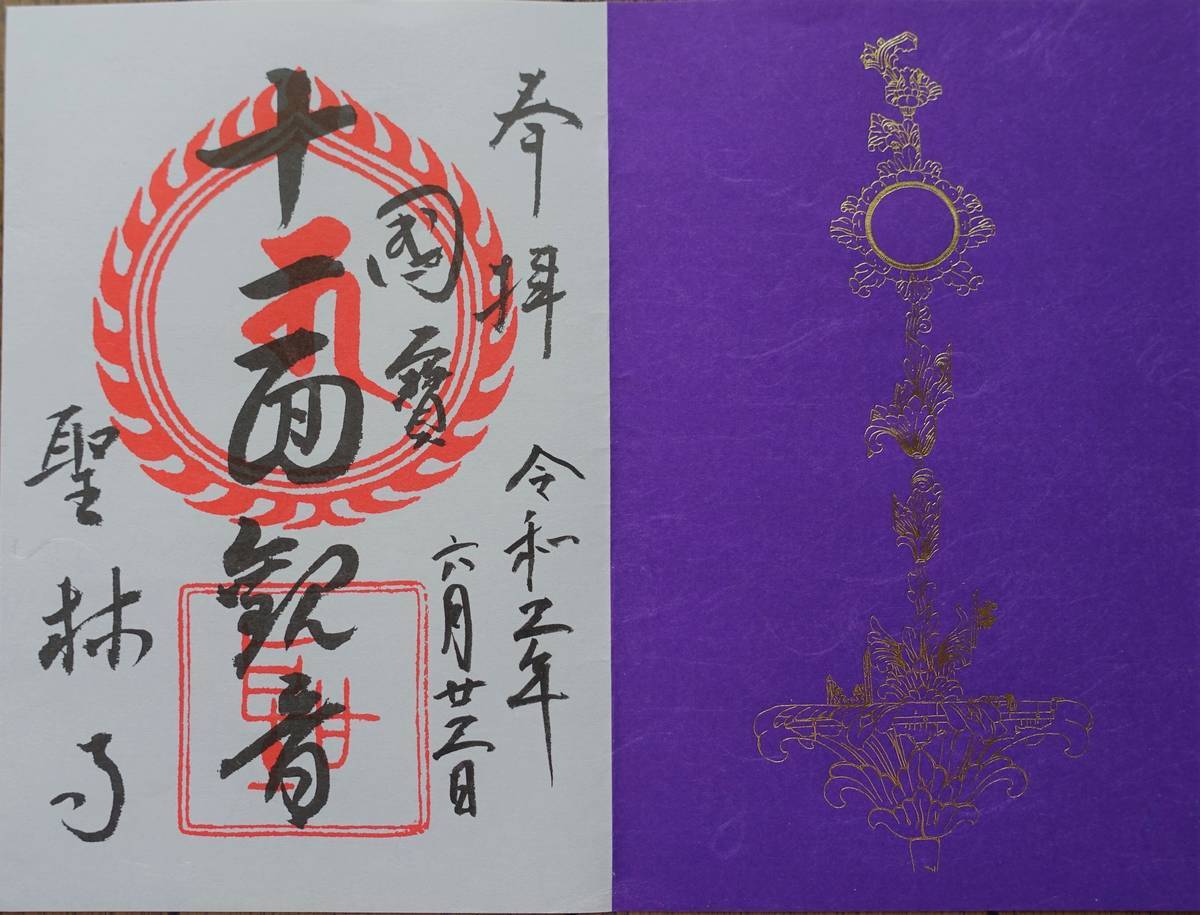 奉拝
令和二年
六月廿二日
國寶
十一面観音
聖林寺